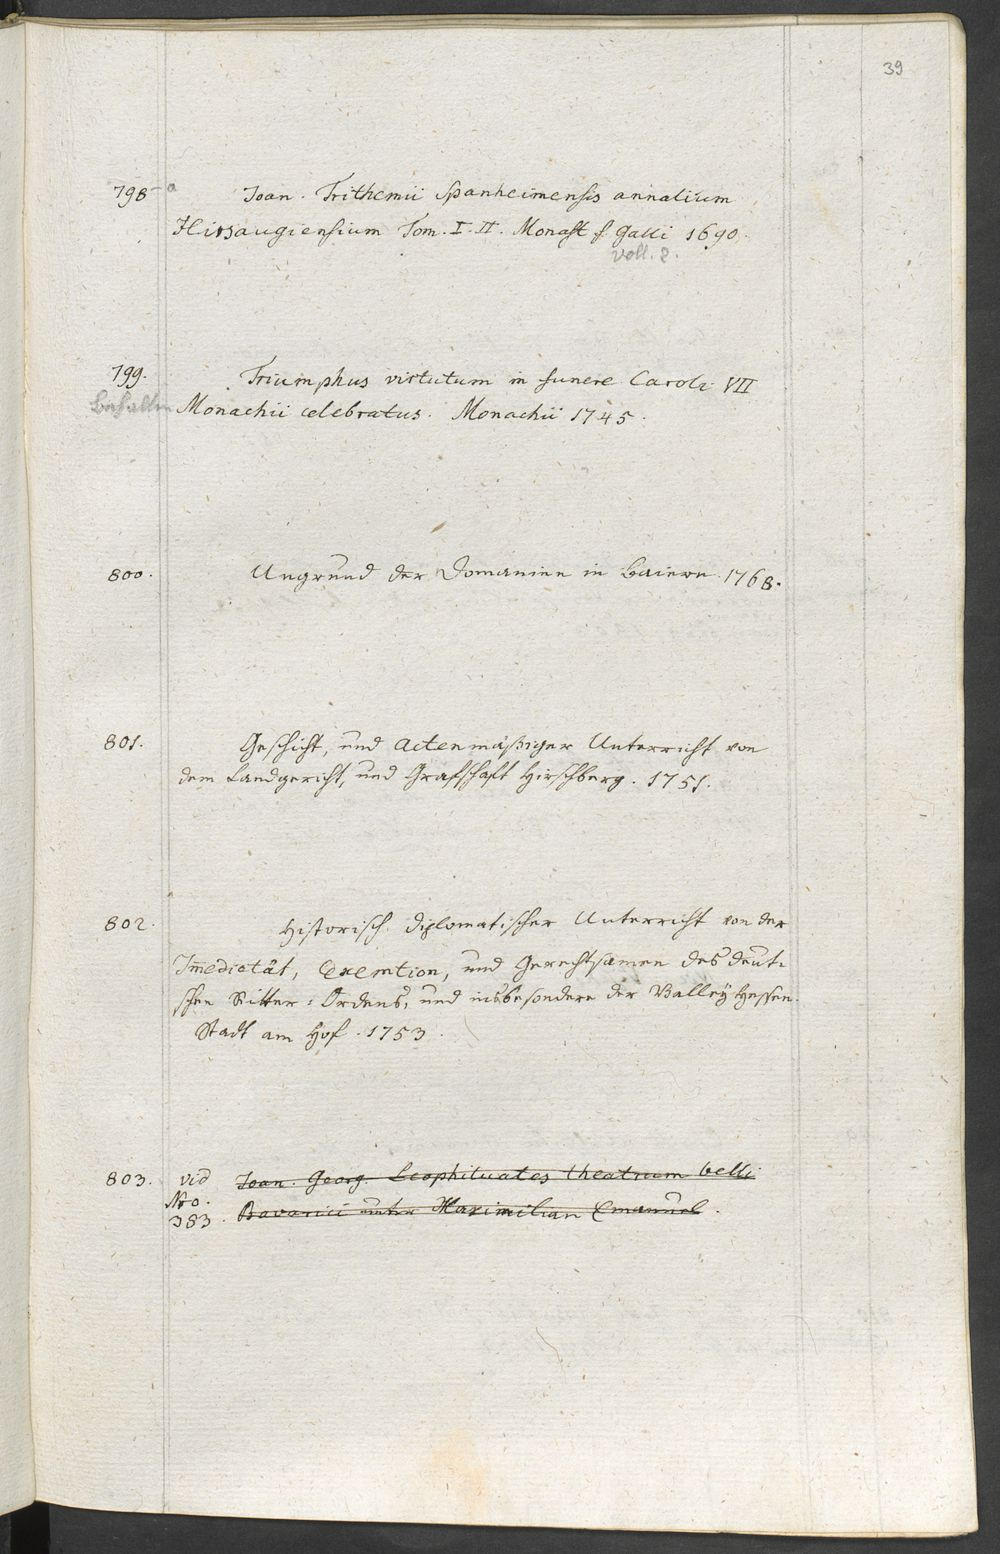 39
798 a Joan. Trithemii Spanheimensis annalium
Hirsaugiensium Tom. I. II. Monast S. Galli 1690.
voll. 2.
799. Triumphus virtutum in funere Caroli VII
behalten Monachii celebratus. Monachii 1745.
800. Ungrund der Domanien in Baiern. 1768.
801. Geschicht, und Actenmäßiger Unterricht von
dem Landgericht, und Grafschaft Hirschberg. 1751.
802. Historisch. diplomatischer Unterricht von der
Im̄edietät, Exemtion, und Gerechtsamen des deut-
schen Ritter-Ordens, und insbesondere der Balley Hessen.
Stadt am Hof. 1753.
803. vid Joan. Georg. theatrum belli
Nro.
383. Bavarici unter Maximilian Emanuel.